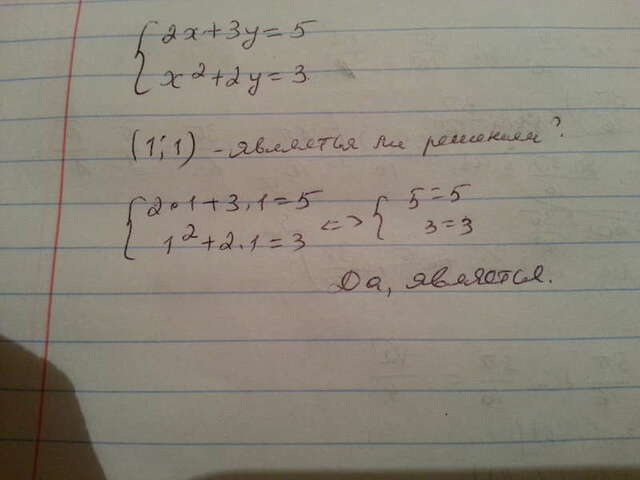 { 2x+3y=5
x²+2y=3.
(1;1) - является ли решением?
{ 2•1+3•1=5 <=> { 5=5
1²+2•1=3 3=3
Да, является.